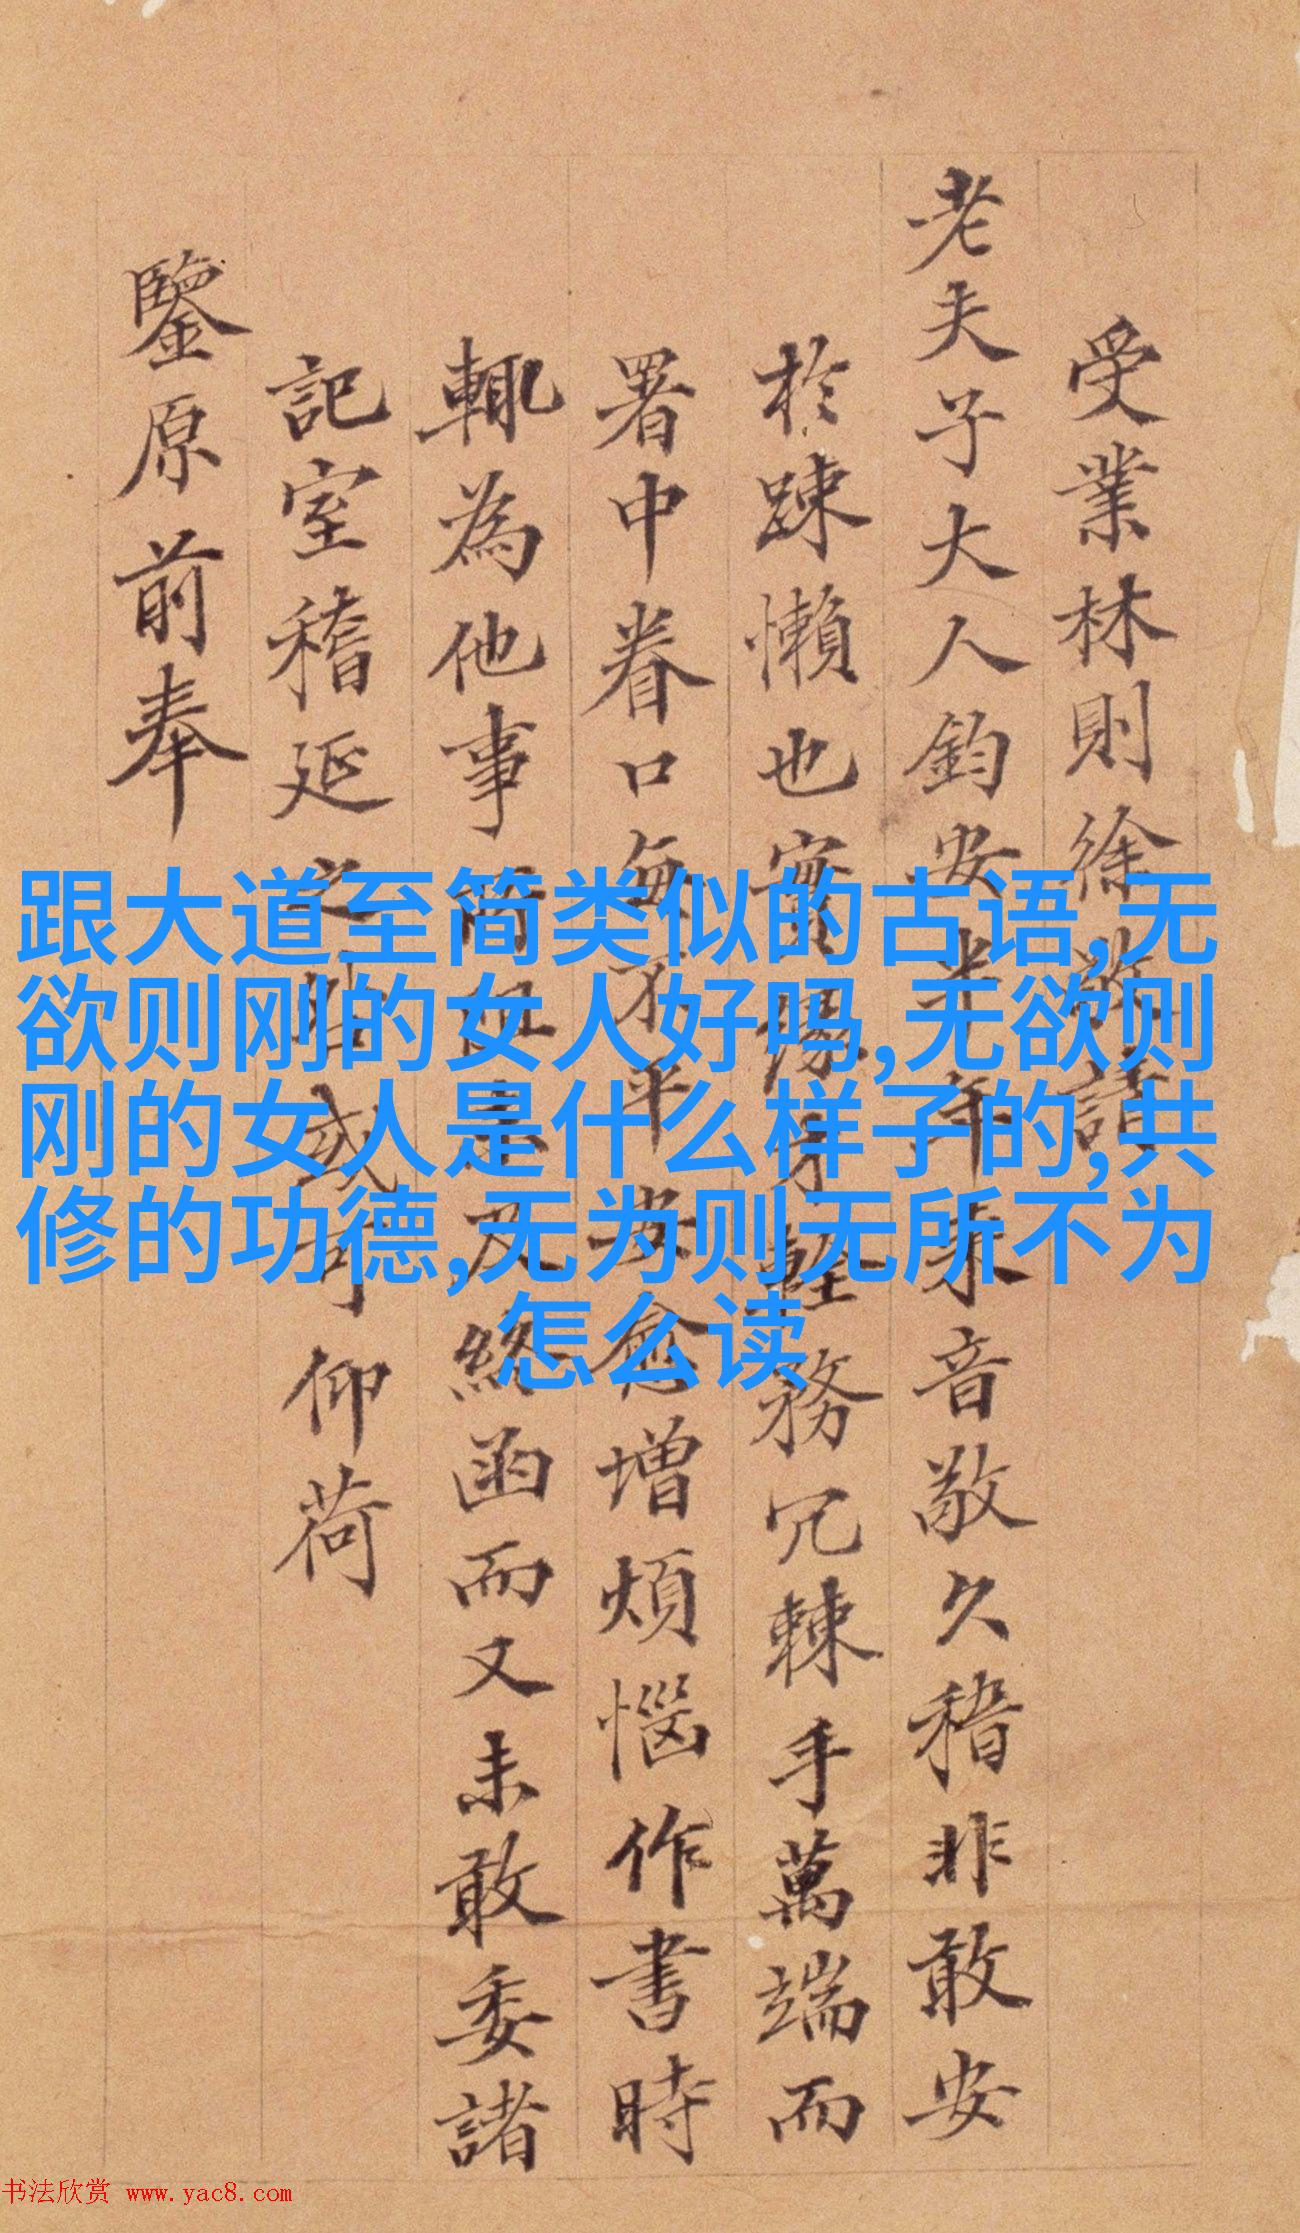 受業林則徐敬請
老夫子大人鈞安半年來音敬久稽非敢安
於踈懶也實緣才輕務冗棘手萬端而
署中眷口每不平安愈增煩惱作書時
輒為他事所阻未及終函而又未敢委諸
記室稽延之咎或可仰荷
鑒原前奉
跟大道至简类似的古语,无
欲则刚的女人好吗,无欲则
刚的女人是什么样子的,共
修的功德,无为则无所不为
怎么读
书法欣赏 www.yac8.com